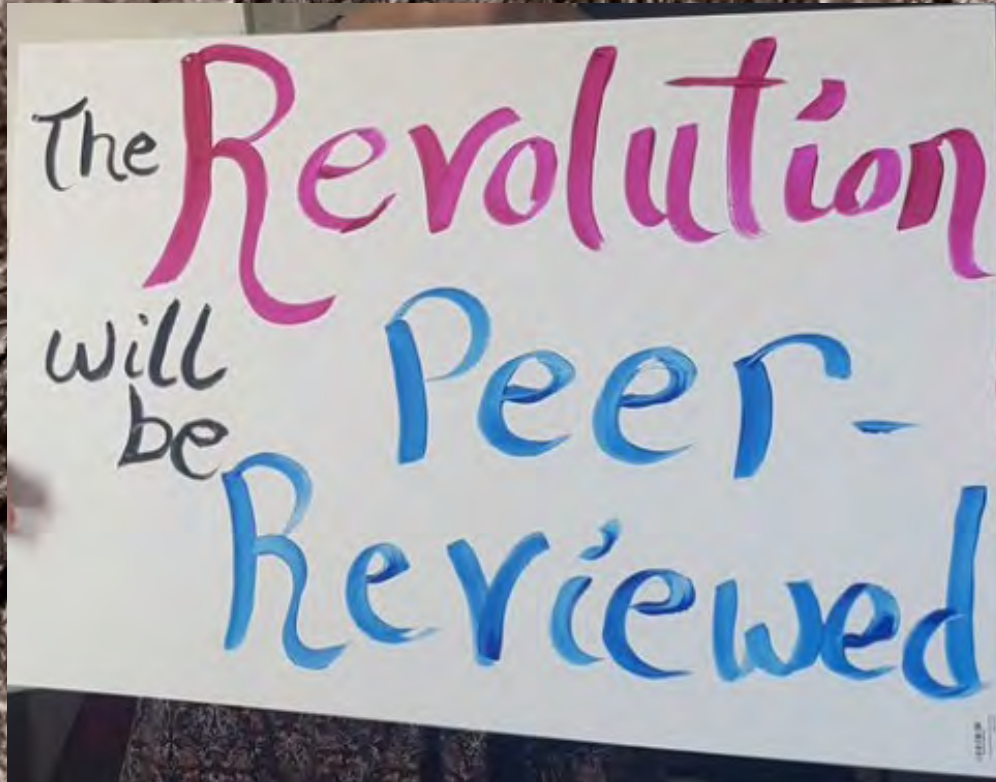 The Revolution
will be Peer-
Reviewed